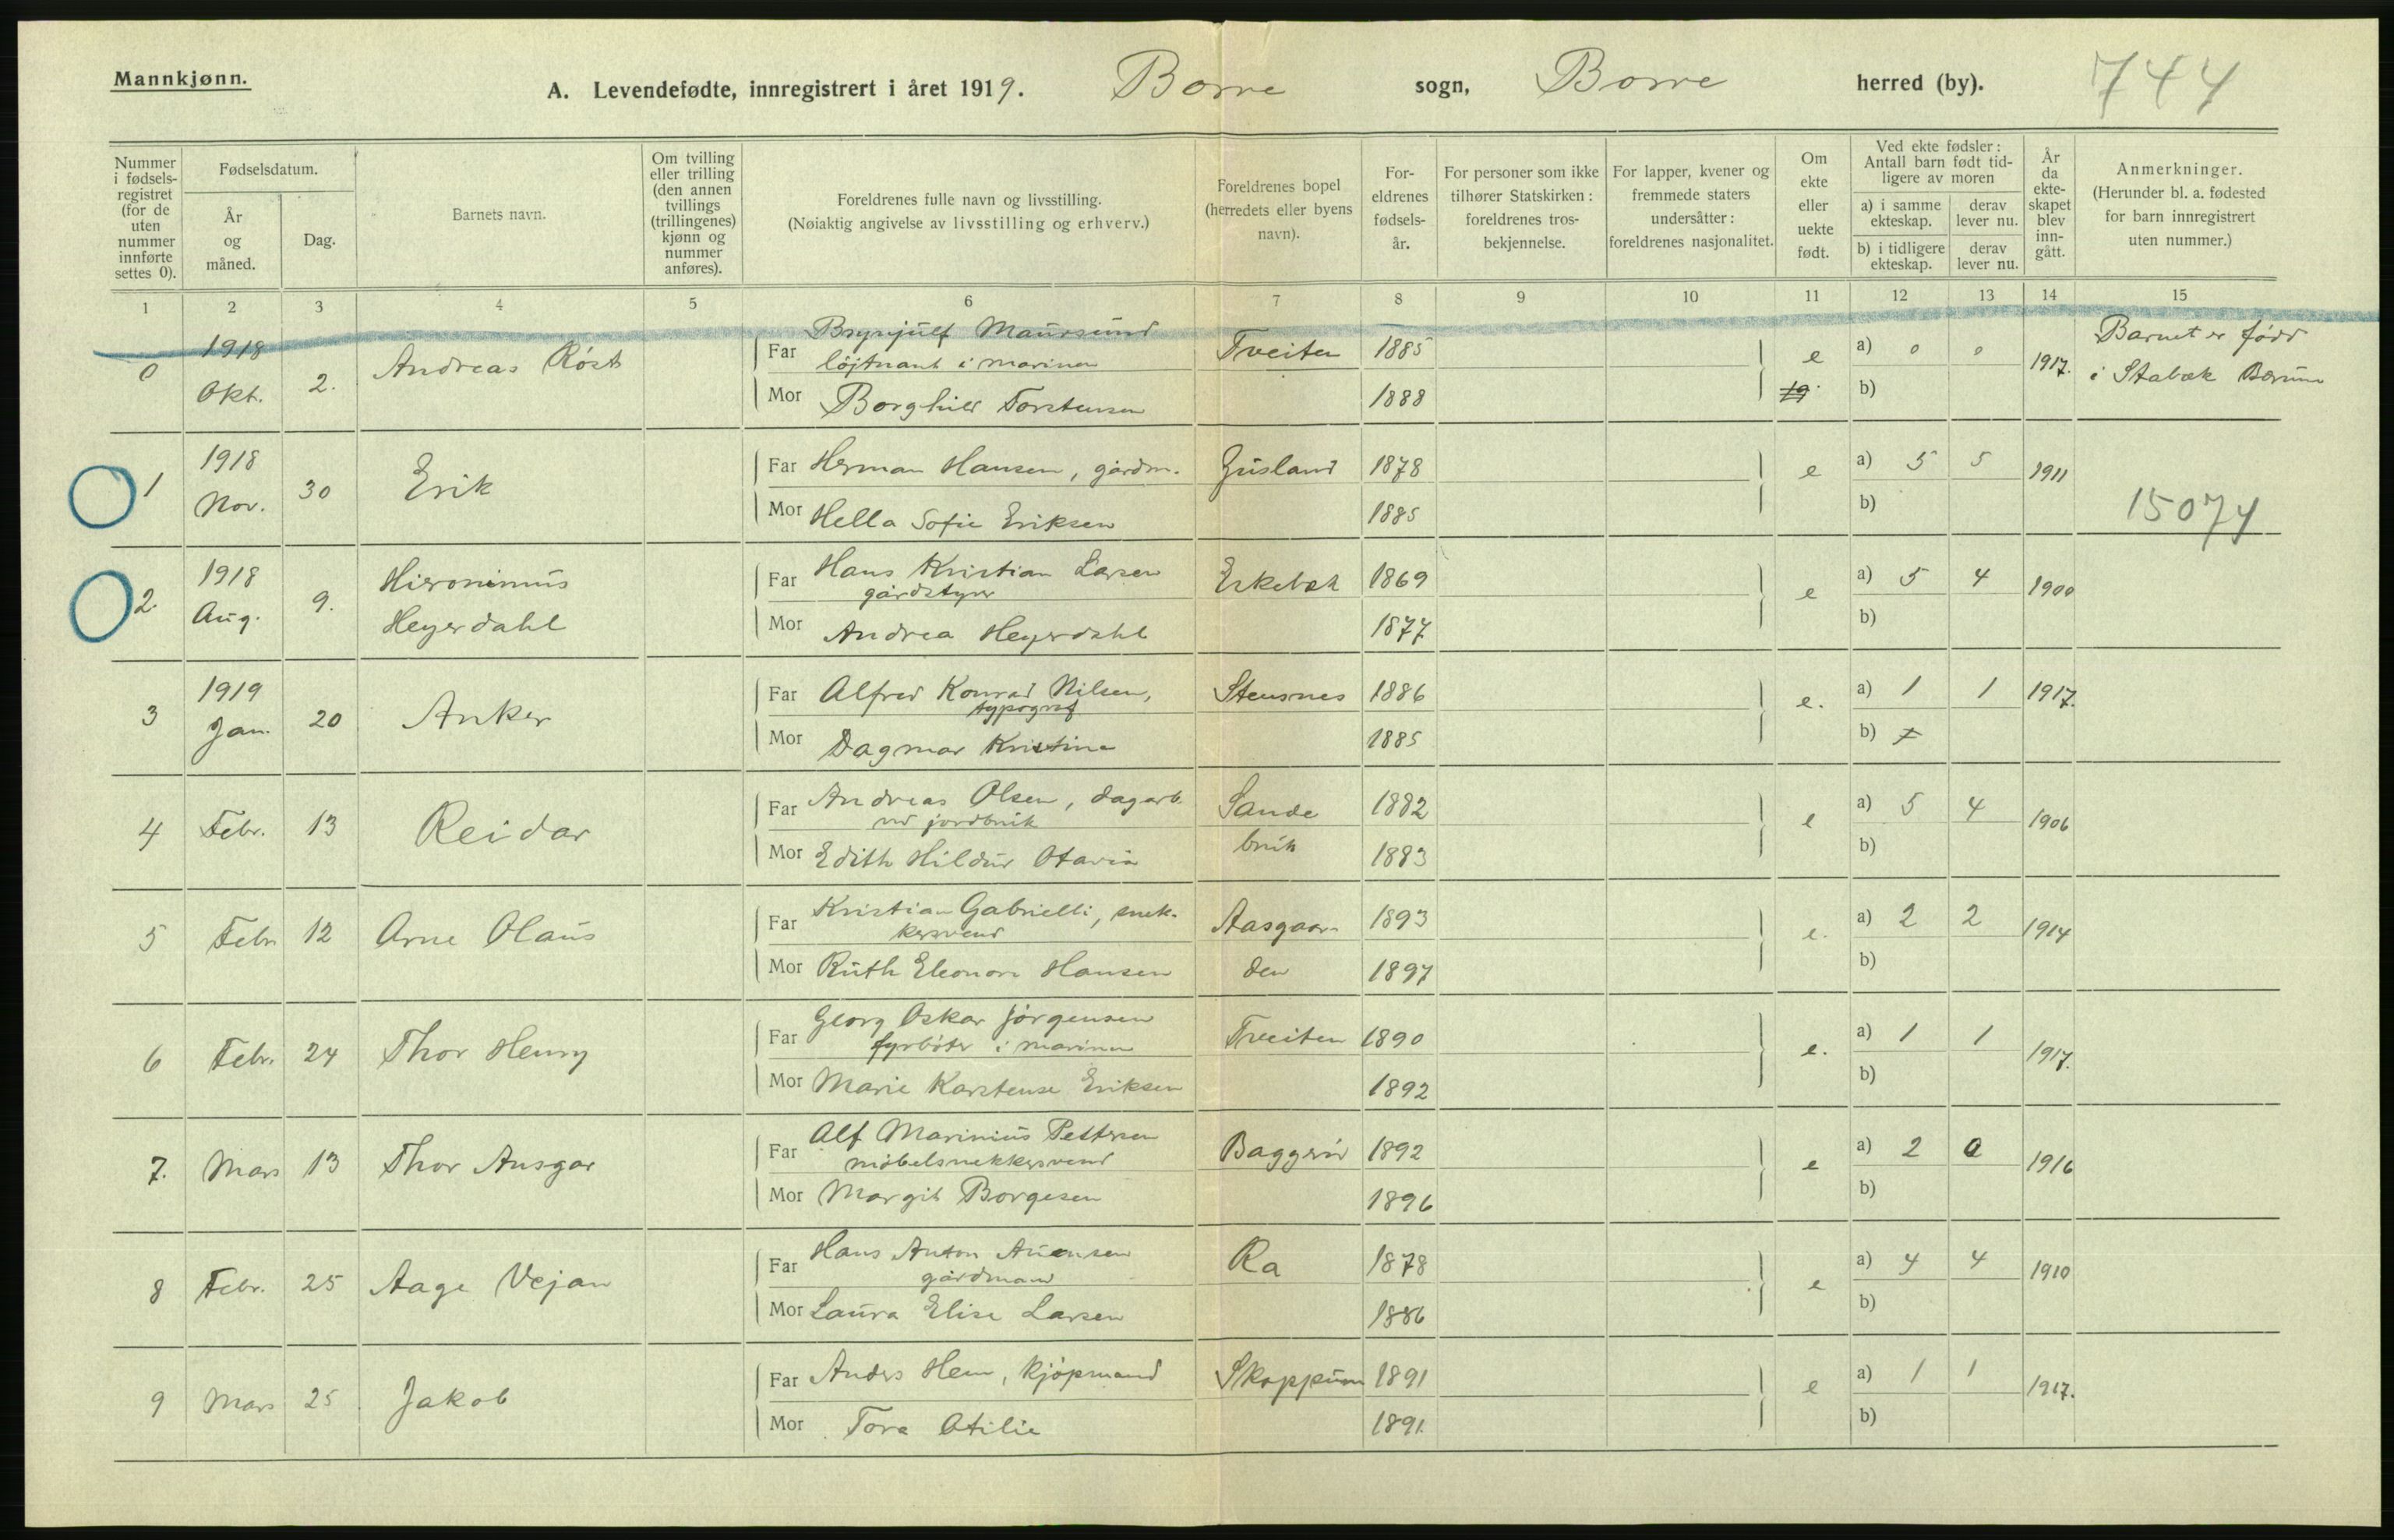 Mannkjønn.
A. Levendefødte, innregistrert i året 1919. Borre sogn, Borre herred (by). 744
Nummer i fødsels-registret (for de uten nummer innførte settes 0).
Fødselsdatum.
År og måned.
Dag.
Barnets navn.
Om tvilling eller trilling (den annen tvillings (trillingenes) kjønn og nummer anføres).
Foreldrenes fulle navn og livsstilling.
(Nøiaktig angivelse av livsstilling og erhverv.)
Foreldrenes bopel (herredets eller byens navn).
For-eldrenes fødsels-år.
For personer som ikke tilhører Statskirken: foreldrenes tros-bekjennelse.
For lapper, kvener og fremmede staters undersåtter: foreldrenes nasjonalitet.
Om ekte eller uekte født.
Ved ekte fødsler: Antall barn født tid-ligere av moren
a) i samme ekteskap. derav lever nu.
b) i tidligere ekteskap. derav lever nu.
År da ekte-skapet blev inn-gått.
Anmerkninger.
(Herunder bl. a. fødested for barn innregistrert uten nummer.)
1 2 3 4 5 6 7 8 9 10 11 12 13 14 15
0 1918 Okt. 2. Andreas Röst
Far Brynjulf Maursund løjtnant i marinen Tveiten 1885 e a) 0 0 1917.
Barnet er född i Stabæk Bærum
Mor Borghild Torstensen 1888 19 b)
1 1918 Nov. 30 Erik
Far Herman Hansen, gårdm. 1878 e a) 5 5 1911
Mor Hella Sofie Eriksen 1885 b)
15074
2. 1918 Aug. 9. Hieronimus Heyerdahl
Far Hans Kristian Larsen gårdstyrer 1869 e a) 5 4 1900
Mor Andrea Heyerdahl 1877 b)
3 1919 Jan. 20 Anker
Far Alfred Konrad Nilsen, typograf Stensnes 1886 e. a) 1 1 1917.
Mor Dagmar Kristine 1885 b)
4 Febr. 13 Reidar
Far Andreas Olsen, dagarb. ved jordbruk Sande 1882 e a) 5 4 1906
Mor Edith Hildur Otavia bruk 1883 b)
5 Febr 12 Arne Olaus
Far Kristian Gabrielli, snek-kersvend Aasgaar- 1893 e. a) 2 2 1914
Mor Ruth Eleonore Hansen den 1897 b)
6 Febr. 24 Thor Henry
Far Georg Oskar Jörgensen fyrböter i marinen Tveiten 1890 e. a) 1 1 1917.
Mor Marie Karstense Eriksen 1892 b)
7. Mars 13 Thor Ansgar
Far Alf Marinius Pettersen möbelsnekkersvend Baggerød 1892 e a) 2 0 1916
Mor Margit Borgesen 1896 b)
8 Febr. 25 Aage Vejan
Far Hans Anton gårdmand Ra 1878 e a) 4 4 1910
Mor Laura Elise Larsen 1886 b)
9 Mars 25 Jakob
Far Anders Hem, kjöpmand Skoppum 1891 e a) 1 1 1917.
Mor Tora Otilie 1891. b)